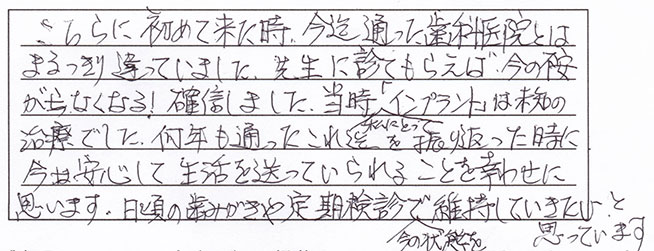 こちらに初めて来た時、今迄通った歯科医院とは
まるっきり違っていました。先生に診てもらえば、今の不安
がなくなる!確信しました。当時「インプラント」は未知の
私にとって
治療でした。何年も通ったこれ迄を振り返った時に
今は安心して生活を送っていられることを幸わせに
思います。日頃の歯みがきや定期検診で維持していきたいと
今の状態を 思っています